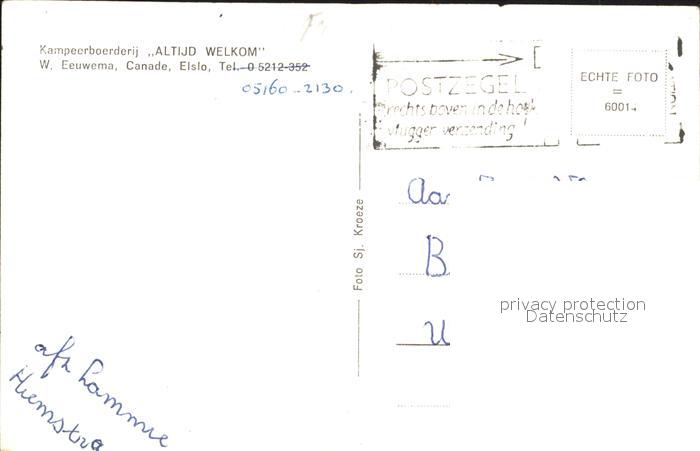 Kampeerboerderij „ALTIJD WELKOM"
W. Eeuwema, Canade, Elslo, Tel. 0 5212-352
05160-2130.
POSTZEGEL
rechts boven in de hoek
vlugger verzending!
ECHTE FOTO
=
6001
Foto Sj. Kroeze
Aa
B
U
privacy protection
Datenschutz
afz Lammie
Hiemstra